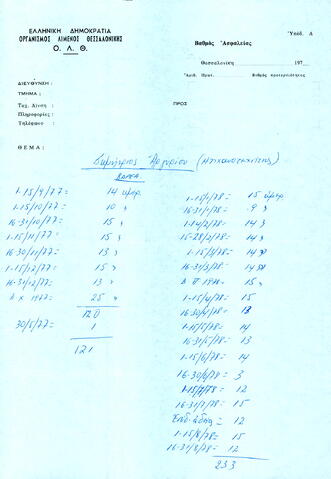 ΕΛΛΗΝΙΚΗ ΔΗΜΟΚΡΑΤΙΑ
ΟΡΓΑΝΙΣΜΟΣ ΛΙΜΕΝΟΣ ΘΕΣΣΑΛΟΝΙΚΗΣ
Ο. Λ. Θ.
Ὑπόδ. Α
Βαθμὸς Ἀσφαλείας
Θεσσαλονίκη 197
Ἀριθ. Πρωτ. Βαθμὸς προτεραιότητος
ΔΙΕΥΘΥΝΣΗ :
ΤΜΗΜΑ :
Ταχ. Δ/νση :
Πληροφορίες :
Τηλέφωνο :
ΠΡΟΣ
ΘΕΜΑ :
Δημήτριος Αργυρίου
1-15/9/77= 14 ημερ.
1-15/10/77= 10 "
16-31/10/77= 15 "
1-15/11/77= 15 "
16-30/11/77= 13 "
1-15/12/77= 15 "
16-31/12/77= 13 "
1977= 25 "
120
30/5/77= 1
121
1-15/1/78= 15 ημερ.
16-31/1/78= 9 "
1-14/2/78= 14 "
15-28/2/78= 14 "
1-15/3/78= 14
16-31/3/78= 14
1978= 15
1-15/4/78= 15
16-30/4/78= 13
1-15/5/78= 14
16-31/5/78= 13
1-15/6/78= 14
16-30/6/78= 3
1-15/7/78= 12
16-31/7/78= 15
= 12
1-15/8/78= 15
16-31/8/78= 12
233